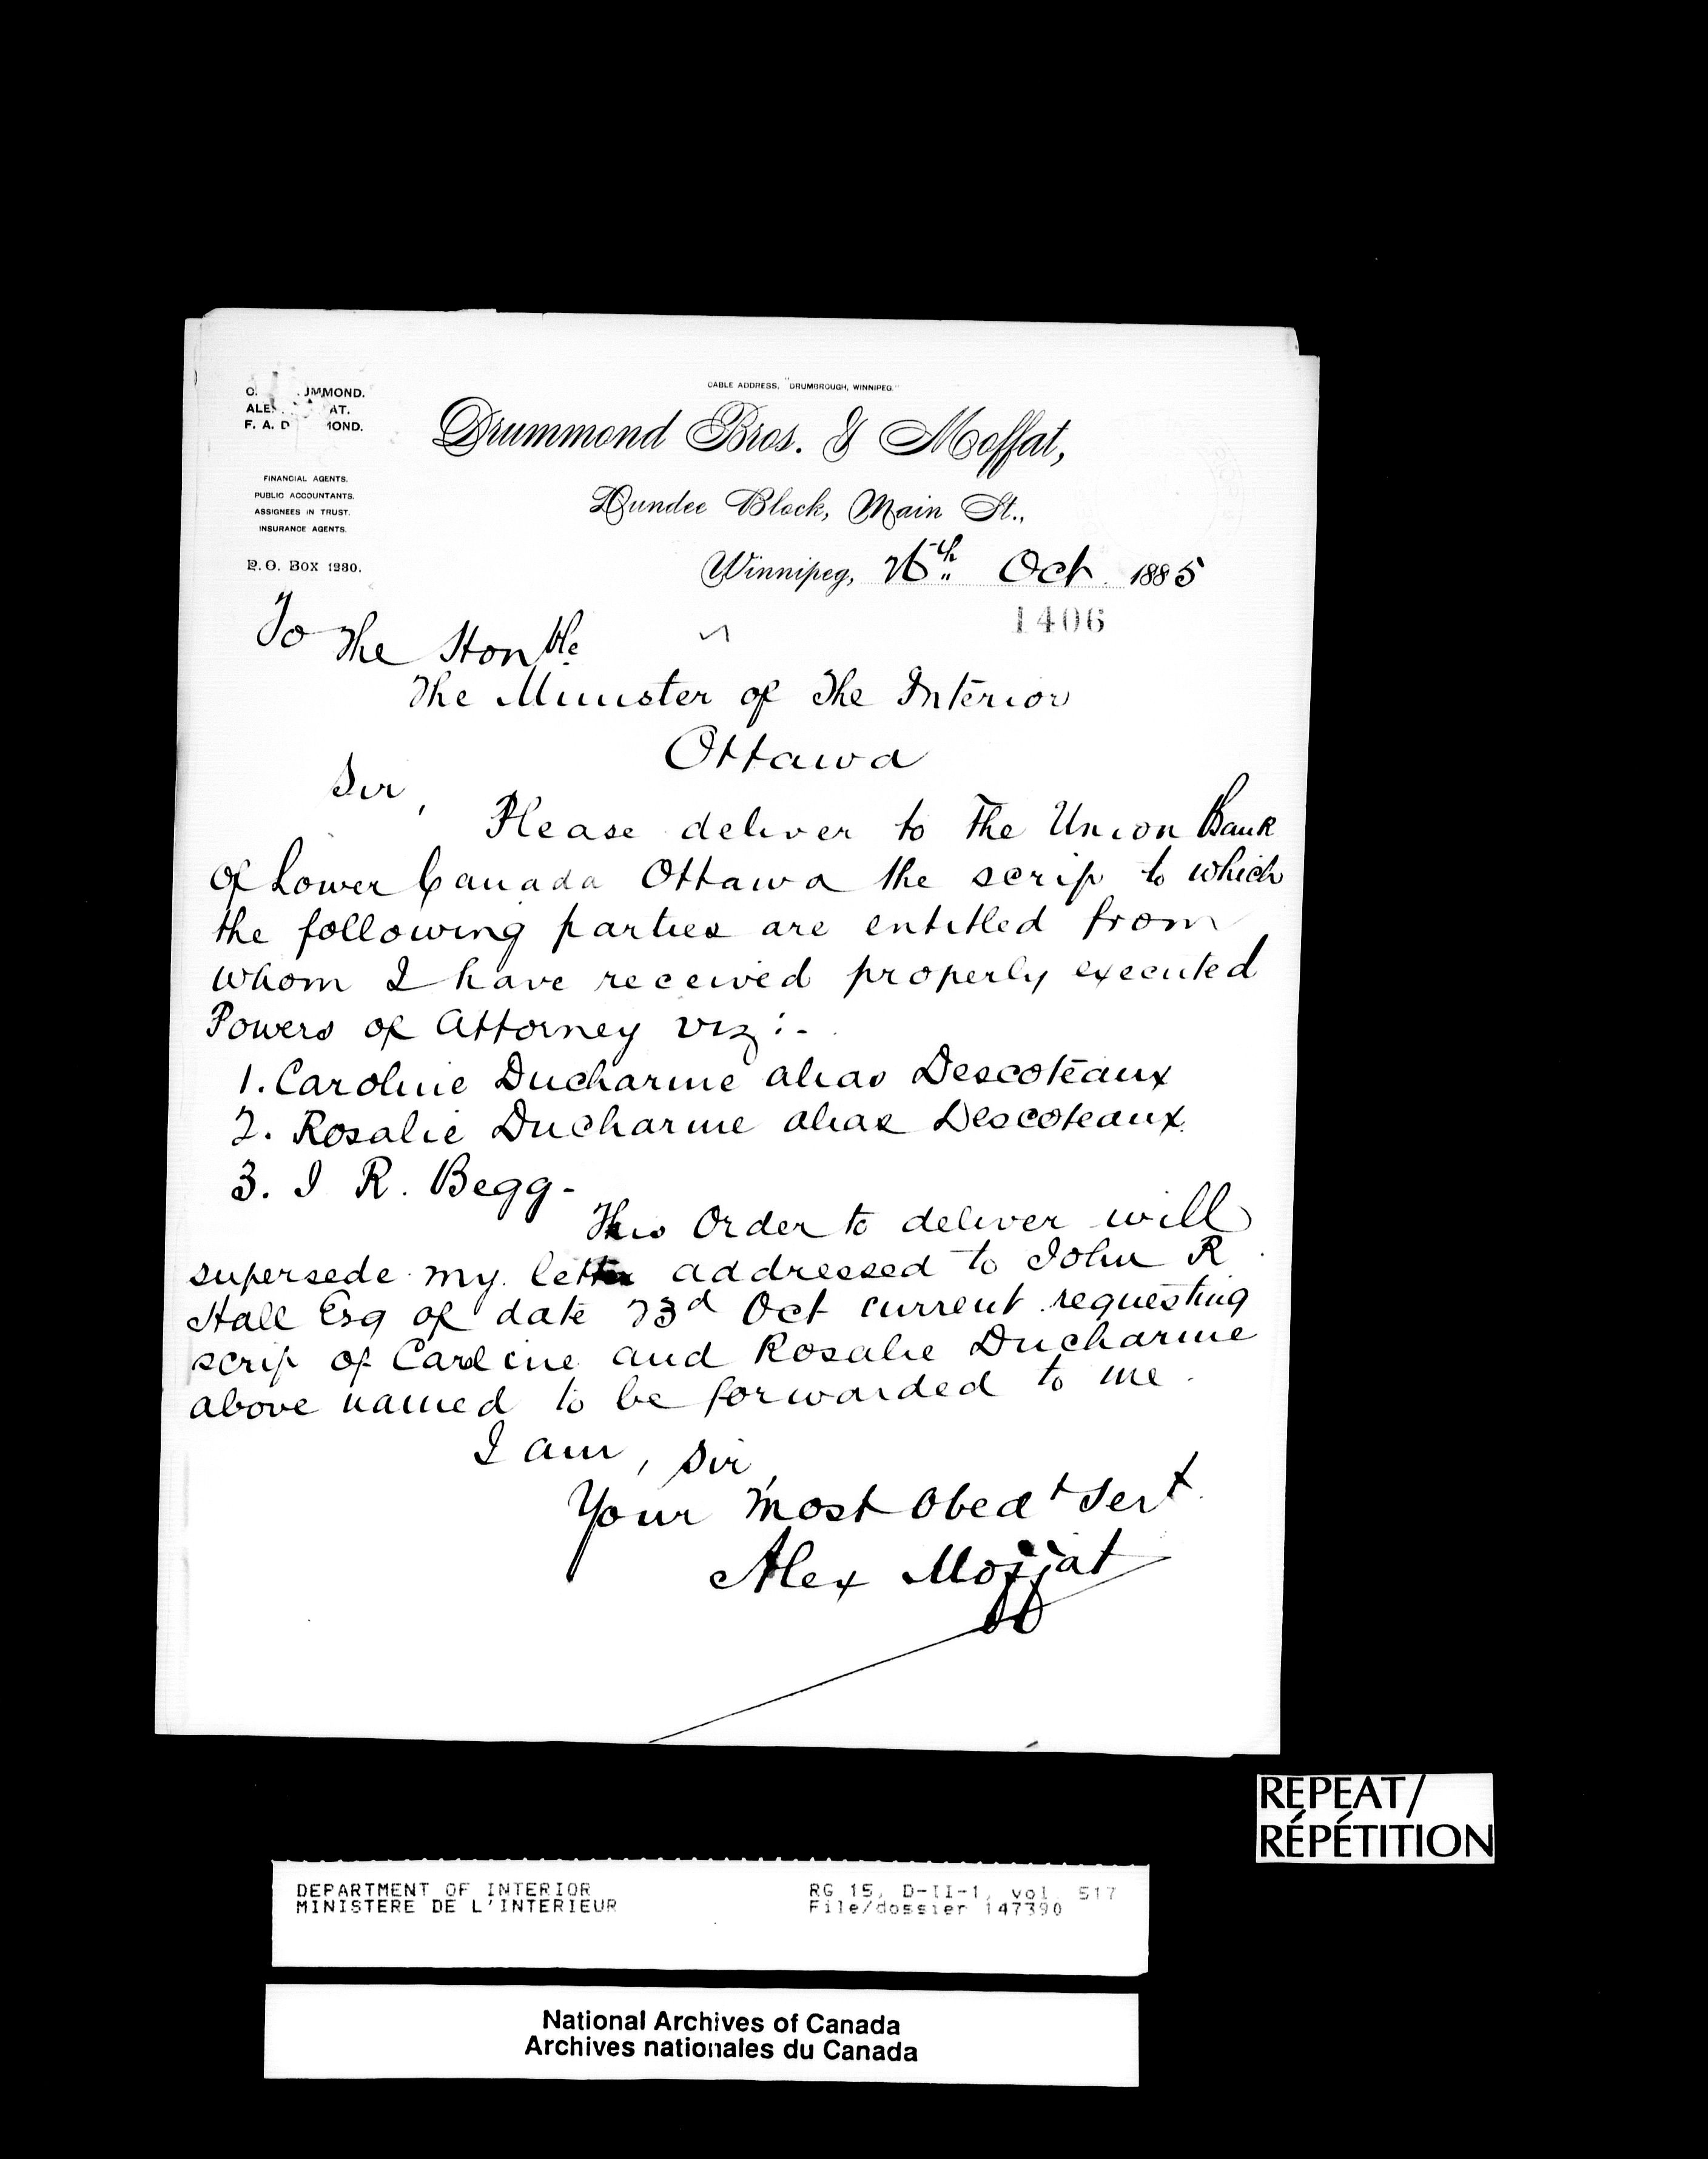 CABLE ADDRESS, "DRUMBROUGH, WINNIPEG."
Drummond Bros. & Moffat,
Dundee Block, Main St.,
F. A. D MOND.
FINANCIAL AGENTS.
PUBLIC ACCOUNTANTS.
ASSIGNEES IN TRUST.
INSURANCE AGENTS.
P.O. BOX 1280.
Winnipeg, 26th Oct. 1885
1406
To The Honble
The Minister of The Interior
Ottawa
Sir,
Please deliver to The Union Bank
of Lower Canada Ottawa the scrip to which
the following parties are entitled from
whom I have received properly executed
Powers of Attorney viz:-
1. Caroline Ducharme alias Descoteaux
2. Rosalie Ducharme alias Descoteaux.
3. I R. Begg-
This Order to deliver will
supersede my letter addressed to John R
Hall Esq of date 23d Oct current requesting
scrip of Caroline and Rosalie Ducharme
above named to be forwarded to me.
I am, Sir,
Your most Obedt Sert
Alex Moffat
REPEAT/
RÉPÉTITION
DEPARTMENT OF INTERIOR
MINISTERE DE L'INTERIEUR
RG 15, D-II-1, vol. 517
File/dossier 147390
National Archives of Canada
Archives nationales du Canada